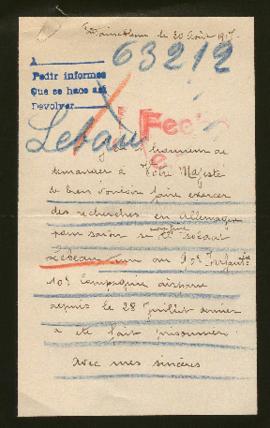 le 20 Août 1917
63212
A
Pedir informes
Que se hace así
Devolver
Lebau
l'honneur de
demander à Votre Majesté
de bien vouloir faire exercer
des recherches en Allemagne
pour savoir si
Lebeau au
10e Compagnie
depuis le 28 Juillet dernier
a été fait prisonnier
Avec mes sincères